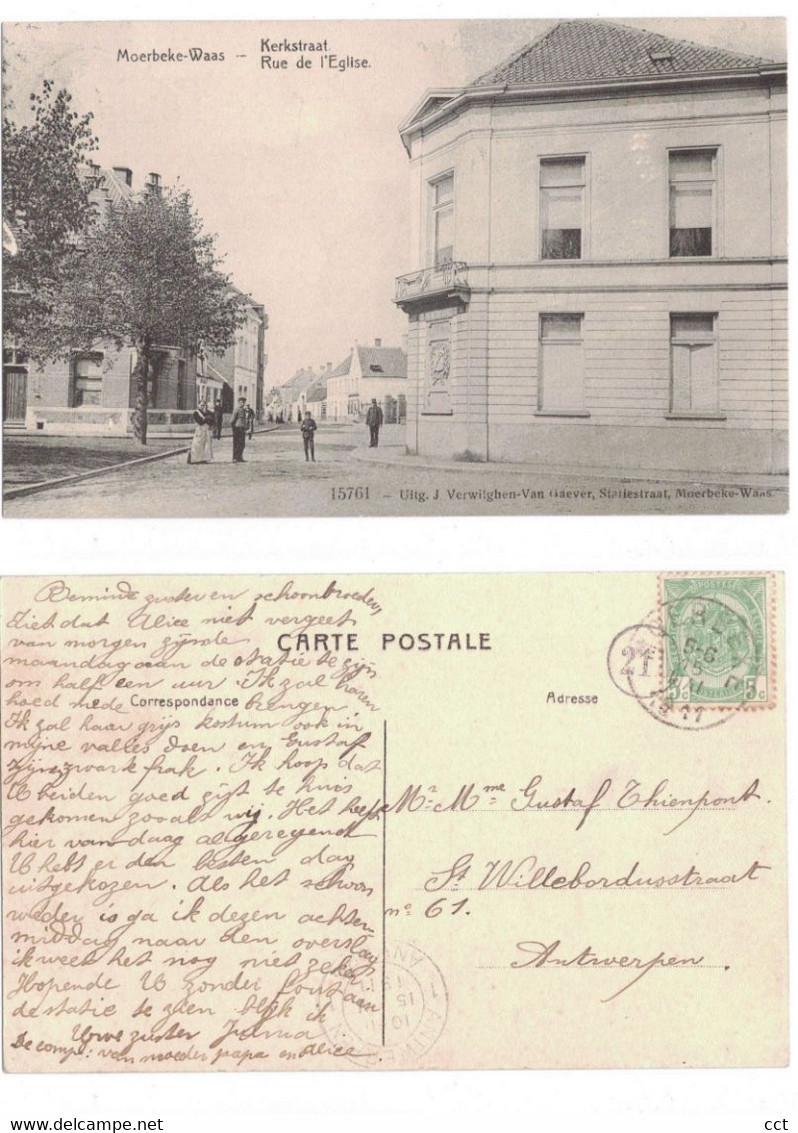 Moerbeke-Waas — Kerkstraat.
Rue de l'Eglise.
15761 — Uitg. J. Verwilghen-Van Gaever, Statiestraat, Moerbeke-Waas.
Beminde zuster en schoonbroeder,
Ziet dat Alice niet vergeet
van morgen zijnde
maandag aan de statie te zijn
om half een uur. Ik zal haren
hoed mede brengen.
Ik zal haar grijs kostum ook in
mijne valies doen en Gustaf
zijn zwark frak. Ik hoop dat
U beiden goed zijt te huis
gekomen zooals wij. Het heeft
hier van daag algeregend
U hebt er den besten dag
uitgekozen. Als het schoon
weder is ga ik dezen achter-
middag naar den overslag
ik weet het nog niet zeker
Hopende U zonder fout aan
de statie te zien blijk ik
Uwe zuster Julma
De comp: van moeder papa en Alice
CARTE POSTALE
Correspondance
Adresse
POSTES
5c 5c
21
5-6
15
1911
Mr. Mme Gustaf Thienpont.
St. Willebordusstraat
no 61.
Antwerpen.
15
10
cct